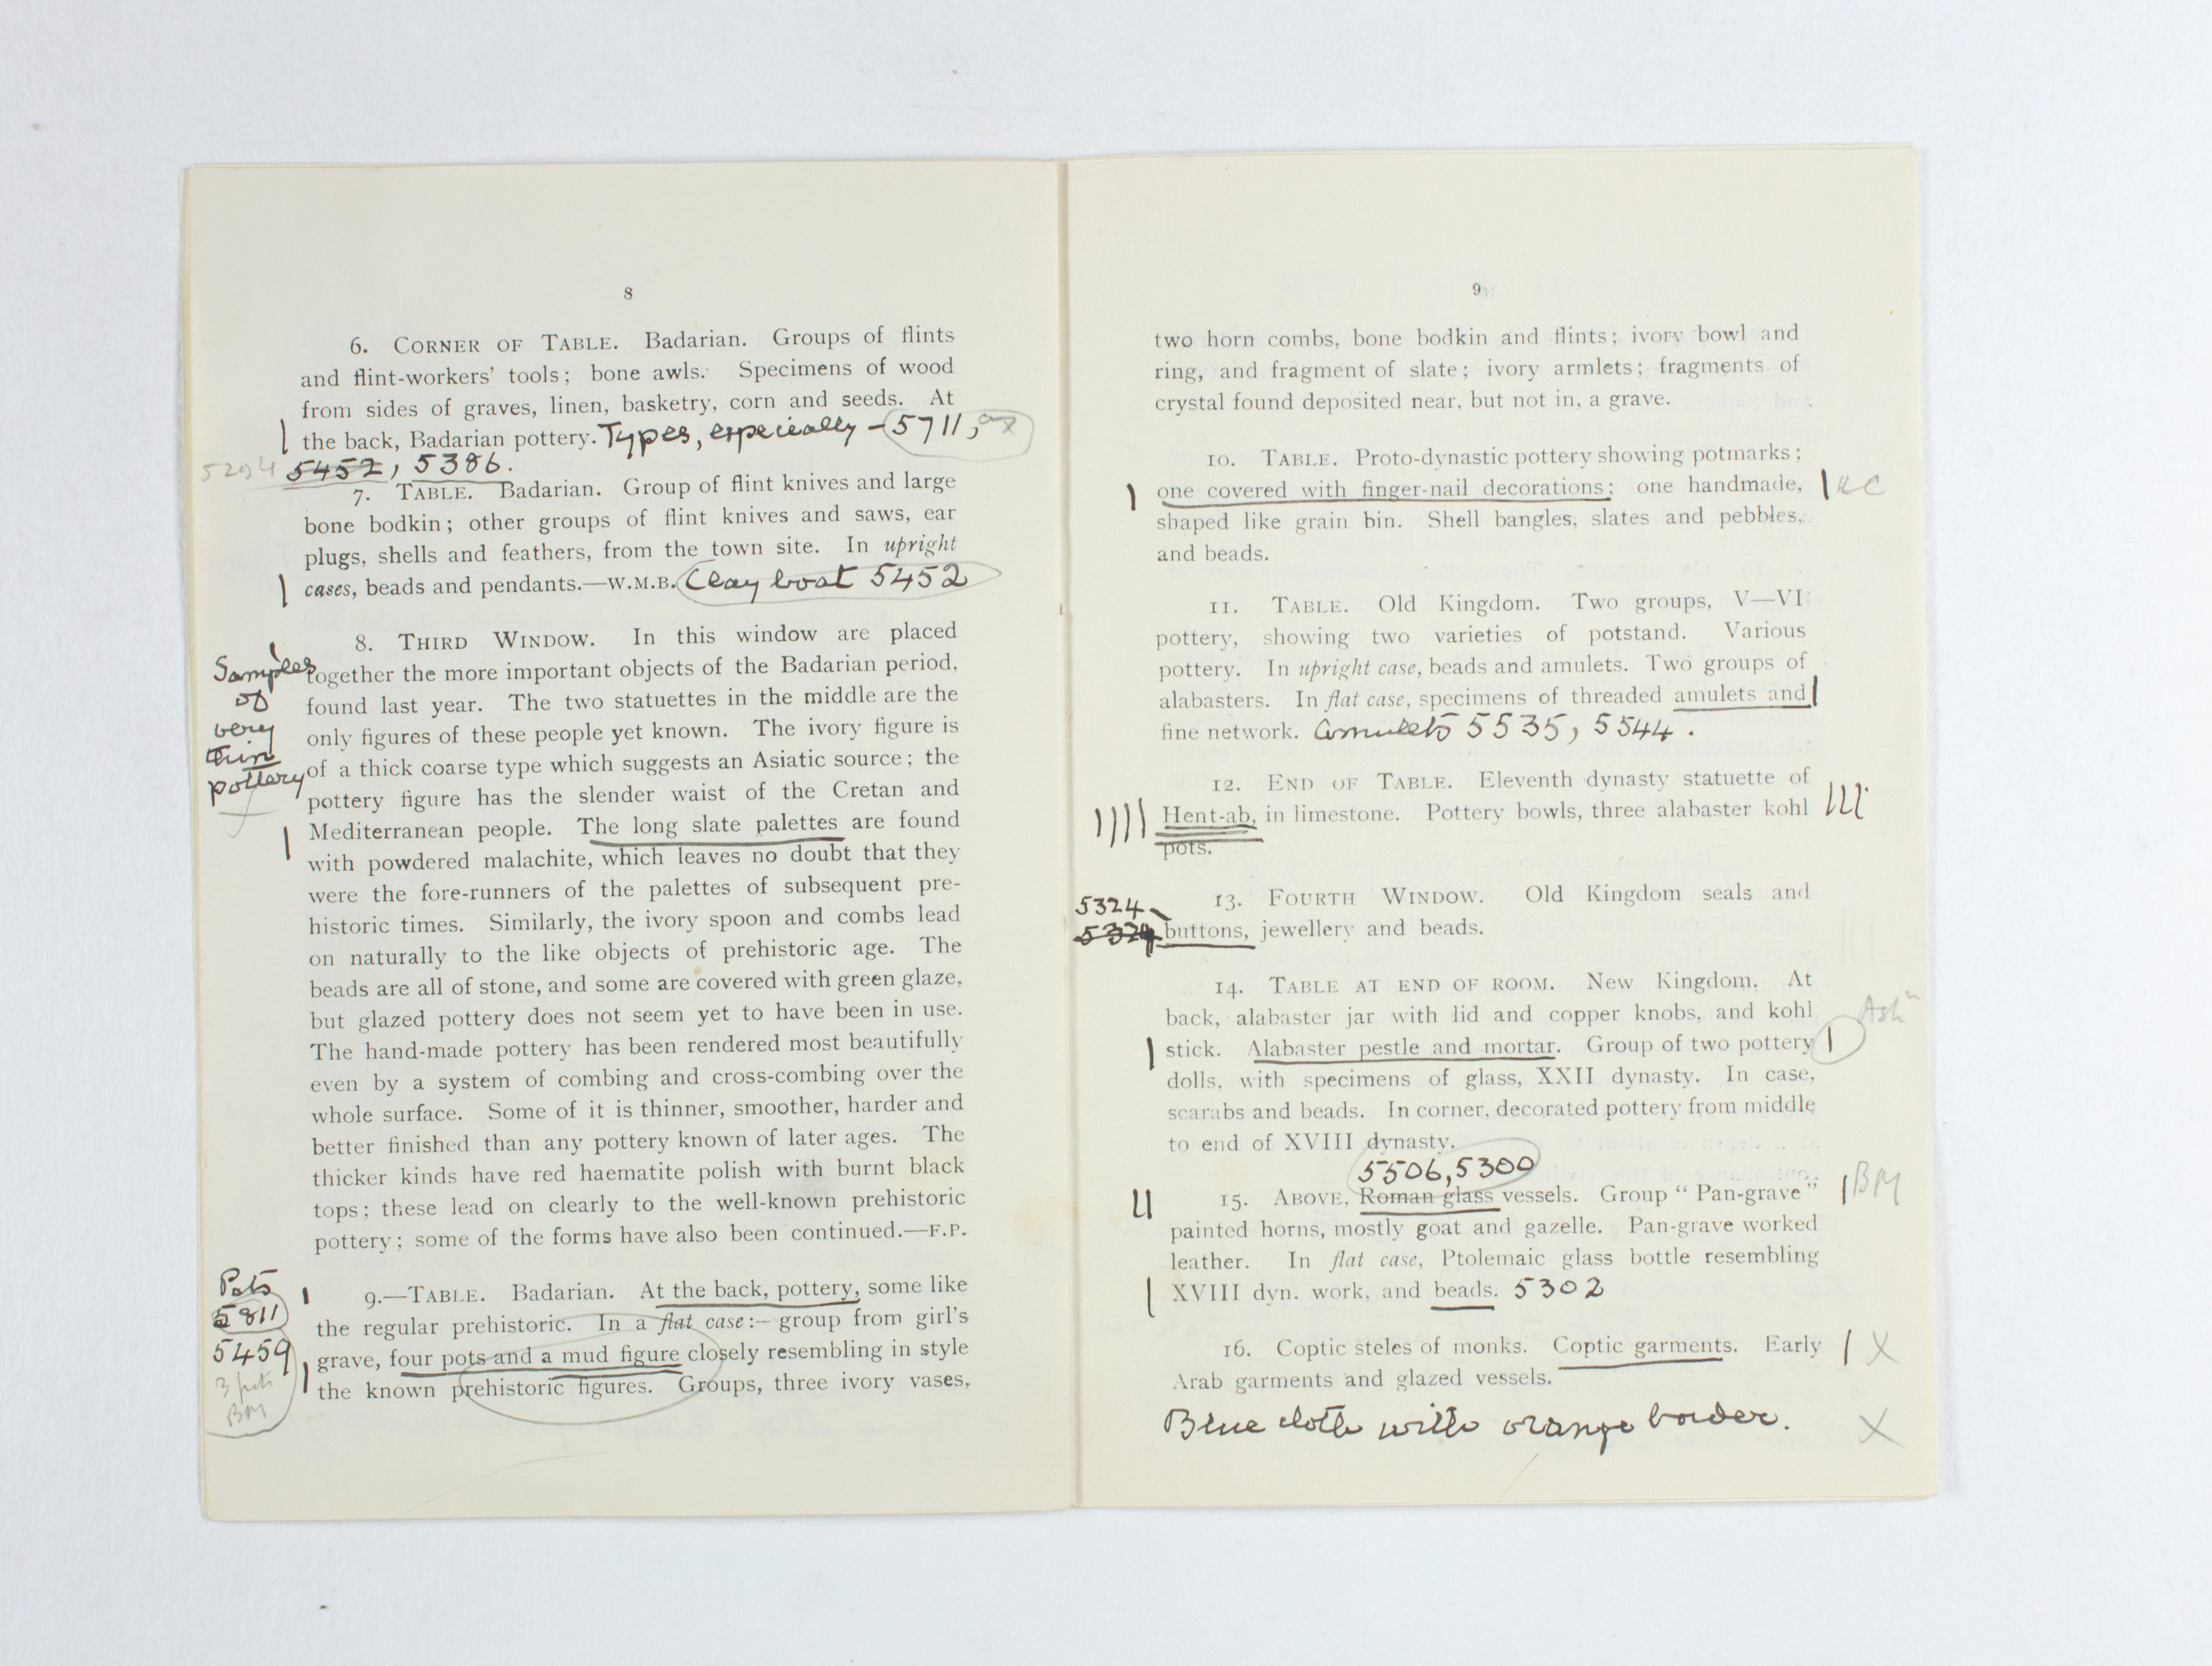 8
6. CORNER OF TABLE. Badarian. Groups of flints
and flint-workers' tools; bone awls. Specimens of wood
from sides of graves, linen, basketry, corn and seeds. At
the back, Badarian pottery. Types, especially - 5711,
5204 5452, 5386.
7. TABLE. Badarian. Group of flint knives and large
bone bodkin; other groups of flint knives and saws, ear
plugs, shells and feathers, from the town site. In upright
cases, beads and pendants.—W.M.B. Clay boat 5452
8. THIRD WINDOW. In this window are placed
together the more important objects of the Badarian period,
found last year. The two statuettes in the middle are the
only figures of these people yet known. The ivory figure is
of a thick coarse type which suggests an Asiatic source; the
pottery figure has the slender waist of the Cretan and
Mediterranean people. The long slate palettes are found
with powdered malachite, which leaves no doubt that they
were the fore-runners of the palettes of subsequent pre-
historic times. Similarly, the ivory spoon and combs lead
on naturally to the like objects of prehistoric age. The
beads are all of stone, and some are covered with green glaze,
but glazed pottery does not seem yet to have been in use.
The hand-made pottery has been rendered most beautifully
even by a system of combing and cross-combing over the
whole surface. Some of it is thinner, smoother, harder and
better finished than any pottery known of later ages. The
thicker kinds have red haematite polish with burnt black
tops; these lead on clearly to the well-known prehistoric
pottery; some of the forms have also been continued.—F.P.
Samples
of
very
thin
pottery
9.—TABLE. Badarian. At the back, pottery, some like
the regular prehistoric. In a flat case:— group from girl's
grave, four pots and a mud figure closely resembling in style
the known prehistoric figures. Groups, three ivory vases,
Pots
5811
5459
3 pots
BM
9
two horn combs, bone bodkin and flints; ivory bowl and
ring, and fragment of slate; ivory armlets; fragments of
crystal found deposited near, but not in, a grave.
10. TABLE. Proto-dynastic pottery showing potmarks;
one covered with finger-nail decorations; one handmade,
shaped like grain bin. Shell bangles, slates and pebbles,
and beads.
11. TABLE. Old Kingdom. Two groups, V—VI
pottery, showing two varieties of potstand. Various
pottery. In upright case, beads and amulets. Two groups of
alabasters. In flat case, specimens of threaded amulets and
fine network. Amulets 5535, 5544.
12. END OF TABLE. Eleventh dynasty statuette of
Hent-ab, in limestone. Pottery bowls, three alabaster kohl
pots.
5324
13. FOURTH WINDOW. Old Kingdom seals and
buttons, jewellery and beads.
14. TABLE AT END OF ROOM. New Kingdom. At
back, alabaster jar with lid and copper knobs, and kohl
Ashn
stick. Alabaster pestle and mortar. Group of two pottery
dolls, with specimens of glass, XXII dynasty. In case,
scarabs and beads. In corner, decorated pottery from middle
to end of XVIII dynasty.
5506, 5300
15. ABOVE, Roman glass vessels. Group "Pan-grave" BM
painted horns, mostly goat and gazelle. Pan-grave worked
leather. In flat case, Ptolemaic glass bottle resembling
XVIII dyn. work, and beads. 5302
16. Coptic steles of monks. Coptic garments. Early X
Arab garments and glazed vessels.
Blue cloth with orange border. X